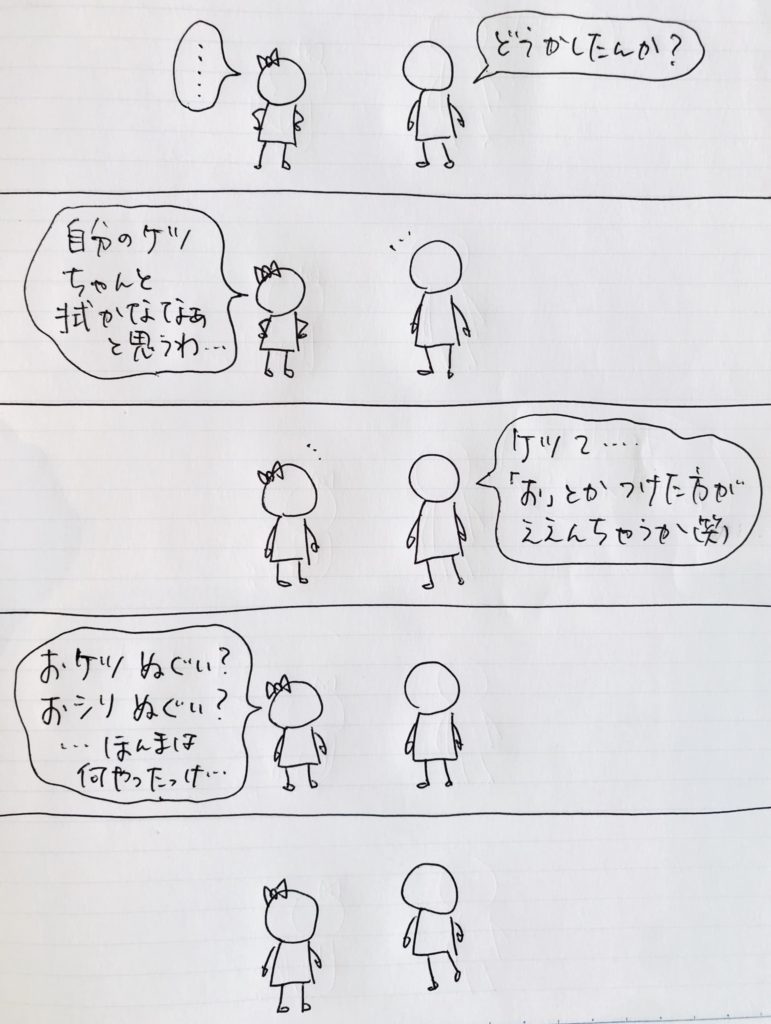 どうかしたんか?
・・・・・
自分のケツ
ちゃんと
拭かななぁ
と思うわ…
ケツて‥‥
「お」とかつけた方が
ええんちゃうか(笑)
おケツぬぐい?
おシリぬぐい?
…ほんまは
何やったっけ…